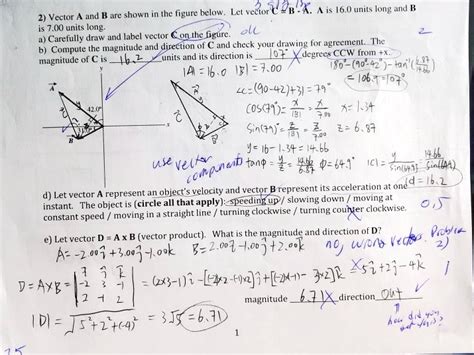 2) Vector A and B are shown in the figure below. Let vector C = B - A. A is 16.0 units long and B
is 7.00 units long.
a) Carefully draw and label vector C on the figure. ok
2
b) Compute the magnitude and direction of C and check your drawing for agreement. The
magnitude of C is 16.2 units and its direction is 107° degrees CCW from +x.
|A| = 16.0 |B| = 7.00
= 106.9 = 107°
y
42.0°
x
A
B
∠C = (90-42)+31 = 79°
cos(79°) = x/|B| = x/7.00 x = 1.34
sin(79°) = z/|B| = z/7.00 z = 6.87
y = 16 - 1.34 = 14.66
use vector
components
tanφ = y/z = 14.66/6.87 φ = 64.9°
= 16.2
d) Let vector A represent an object's velocity and vector B represent its acceleration at one
instant. The object is (circle all that apply): speeding up / slowing down / moving at
constant speed / moving in a straight line / turning clockwise / turning counter clockwise.
0.5
e) Let vector D = A x B (vector product). What is the magnitude and direction of D?
A = -2.00î + 3.00ĵ - 1.00k̂ B = 2.00î - 1.00ĵ + 2.00k̂
no, wrong vectors. Problem
2)
D = A×B = | î ĵ k̂ |
-2 3 -1
2 -1 2
= 5î + 2ĵ - 4k̂
1
magnitude 6.71 direction out
|D| = √5²+2²+(-4)² = 3√5 = 6.71
how did you
get this?
1